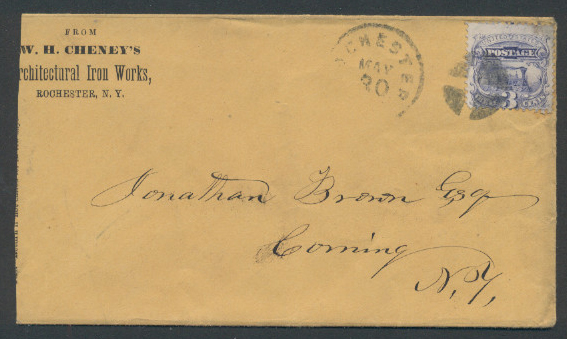 FROM
W. H. CHENEY'S
rchitectural Iron Works,
ROCHESTER, N. Y.
CHESTER
MAY
30
POSTAGE
3
Jonathan Brown Esq
Corning
N.Y.